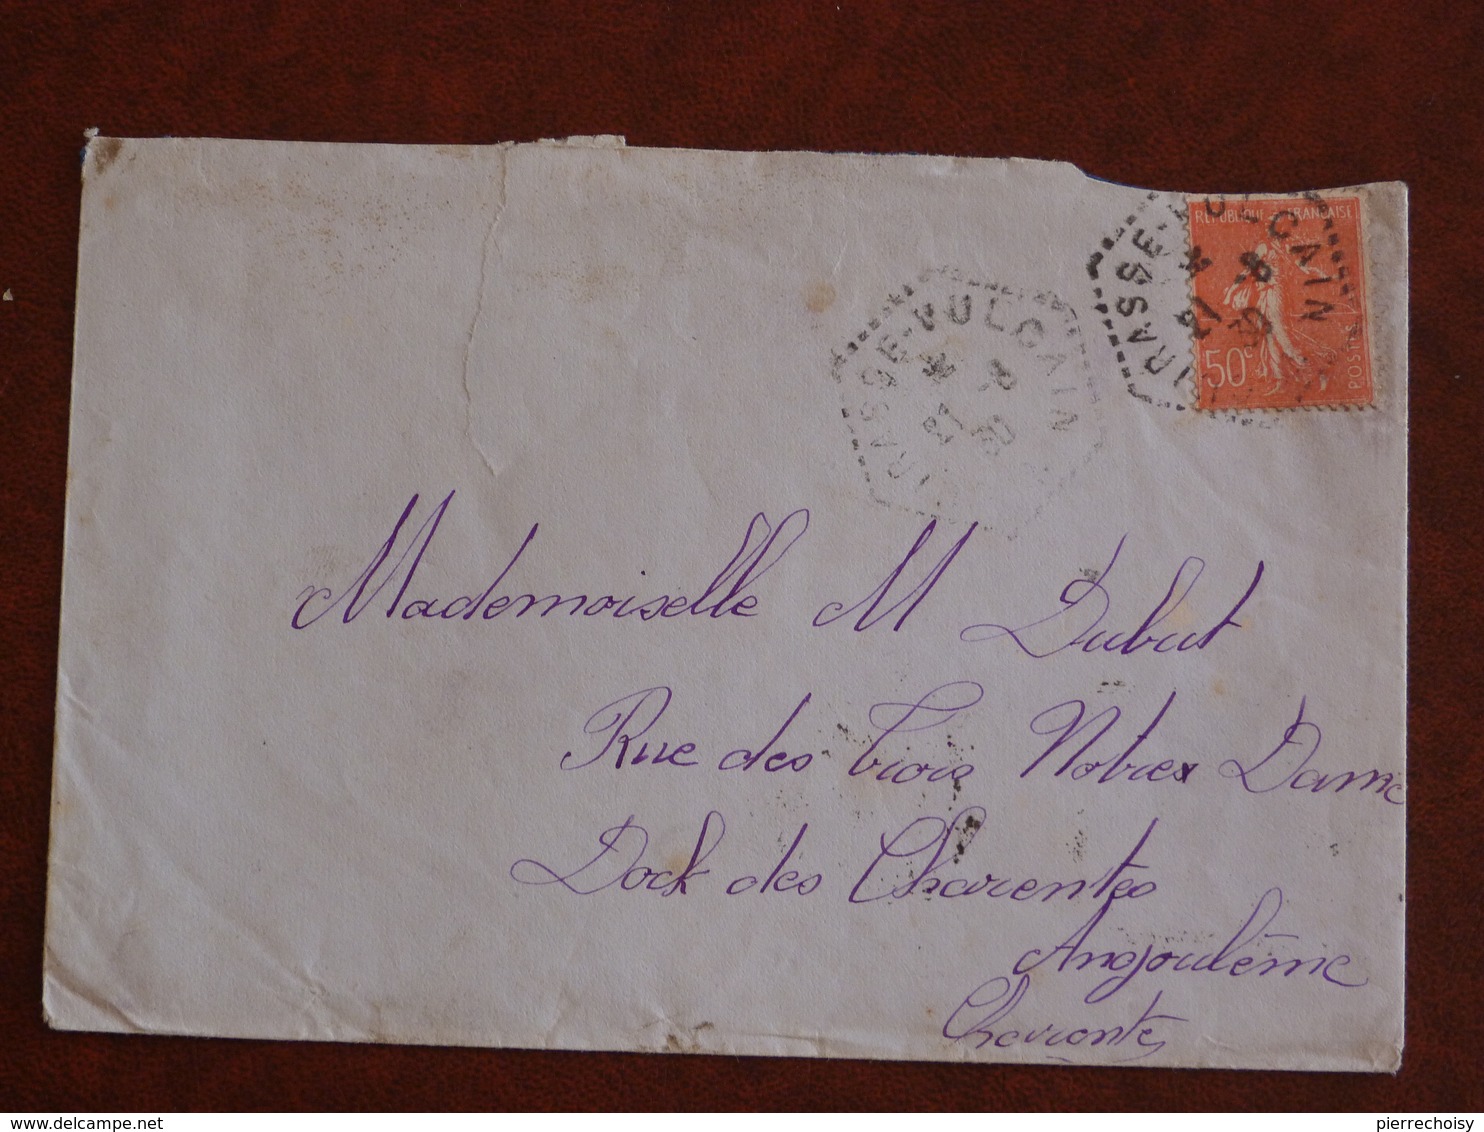 RÉPUBLIQUE FRANÇAISE
50c
POSTES
CUIRASSE-VULCAIN
21
30
CUIRASSE-VULCAIN
21
30
Mademoiselle M Dubut
Rue des trois Notres Dame
Dock des Charentes
Angoulême
Charente
delcampe.net
pierrechoisy